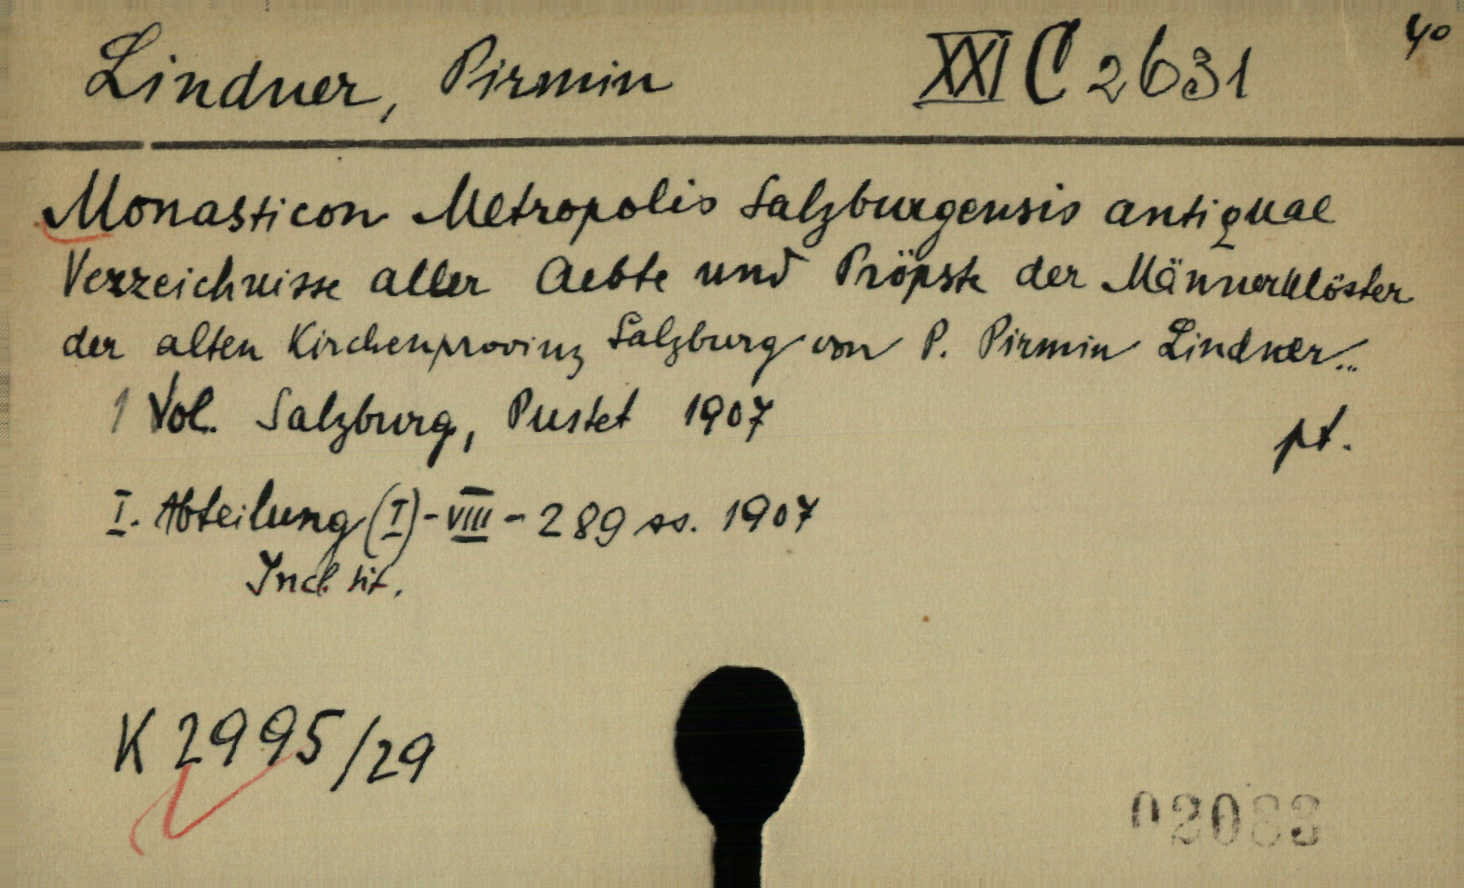 Lindner, Pirmin XXI C 2631 4o
Monasticon Metropolis Salzburgensis antiquae
Verzeichnisse aller Aebte und Pröpste der Männerklöster
der alten Kirchenprovinz Salzburg von P. Pirmin Lindner..
1 Vol. Salzburg, Pustet 1907 pt.
I. Abteilung (I)-VIII-289 ss. 1907
Incl. tit.
K 2995/29
02083